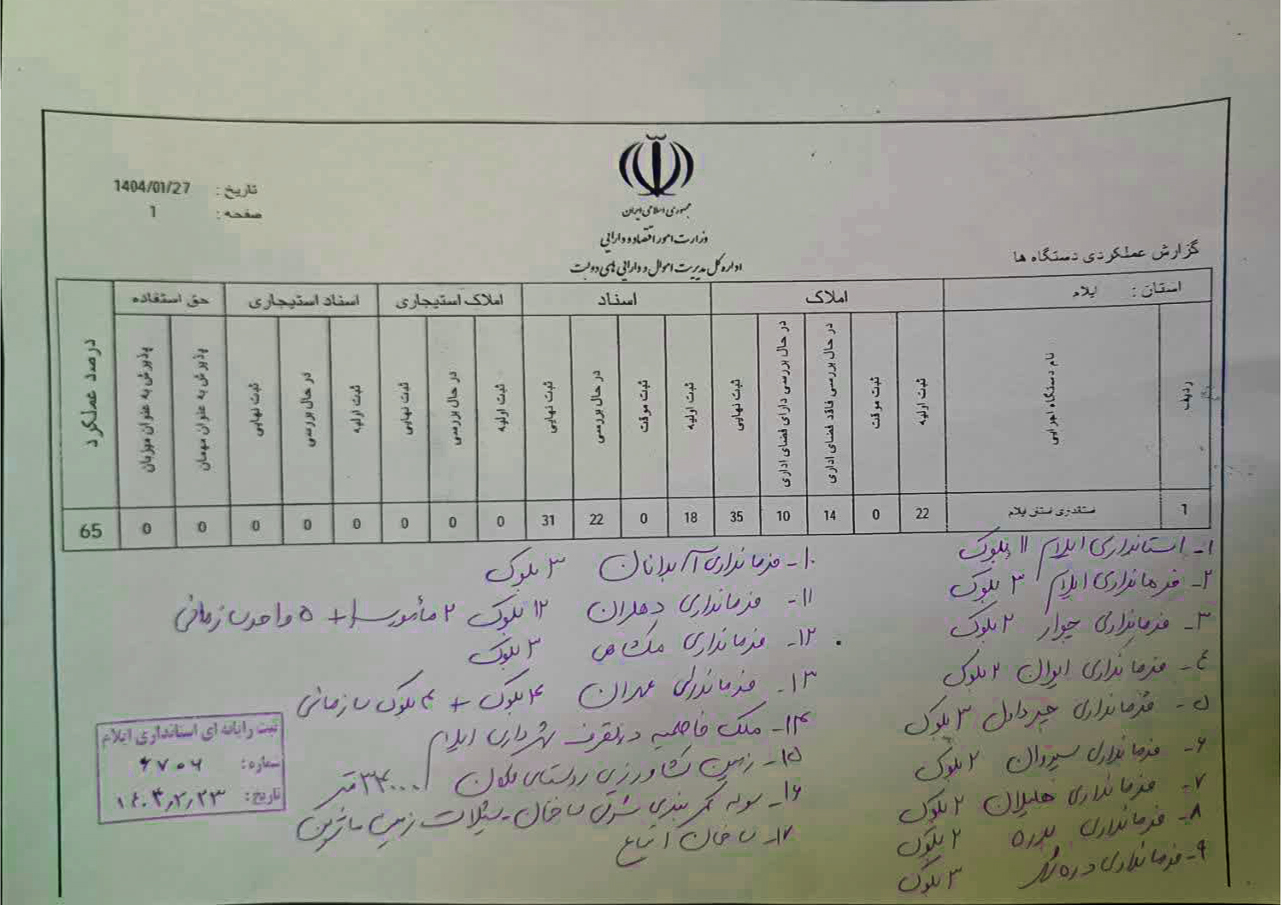 جمهوری اسلامی ایران
وزارت امور اقتصاد و دارایی
اداره کل مدیریت اموال و دارایی های دولت
تاریخ : 1404/01/27
صفحه : 1
گزارش عملکردی دستگاه ها
استان : ایلام
املاک
اسناد
املاک استیجاری
اسناد استیجاری
حق استفاده
درصد عملکرد
ردیف
نام دستگاه اجرایی
ثبت اولیه
ثبت موقت
در حال بررسی فاقد فضای اداری
در حال بررسی دارای فضای اداری
ثبت نهایی
ثبت اولیه
ثبت موقت
در حال بررسی
ثبت نهایی
ثبت اولیه
در حال بررسی
ثبت نهایی
ثبت اولیه
در حال بررسی
ثبت نهایی
پذیرش به عنوان مهمان
پذیرش به عنوان میزبان
1 استانداری استان ایلام 22 0 14 10 35 18 0 22 31 0 0 0 0 0 0 0 0 65
۱- استانداری ایلام ۱۱ بلوک
۲- فرمانداری ایلام ۳ بلوک
۳- فرمانداری چوار ۲ بلوک
۴- فرمانداری ایوان ۲ بلوک
۵- فرمانداری چرداول ۳ بلوک
۶- فرمانداری سیروان ۲ بلوک
۷- فرمانداری هلیلان ۲ بلوک
۸- فرمانداری بدره ۲ بلوک
۹- فرمانداری دره شهر ۳ بلوک
۱۰- فرمانداری آبدانان ۳ بلوک
۱۱- فرمانداری دهلران ۱۲ بلوک ۲ مأمورسرا + ۵ واحد سازمانی
۱۲- فرمانداری ملکشاهی ۳ بلوک
۱۳- فرمانداری مهران ۴ بلوک + ۴ بلوک سازمانی
۱۴- ملک فاطمیه در تصرف شهرداری ایلام
۱۵- زمین کشاورزی روستای ۳۴۰۰۰ متر
۱۶- سوله کمربندی شرقی ساختمان شیلات زمین
۱۷- ساختمان اتباع
ثبت رایانه ای استانداری ایلام
شماره: ۶۷۰۶
تاریخ: ۱۴۰۴٫۲٫۲۳